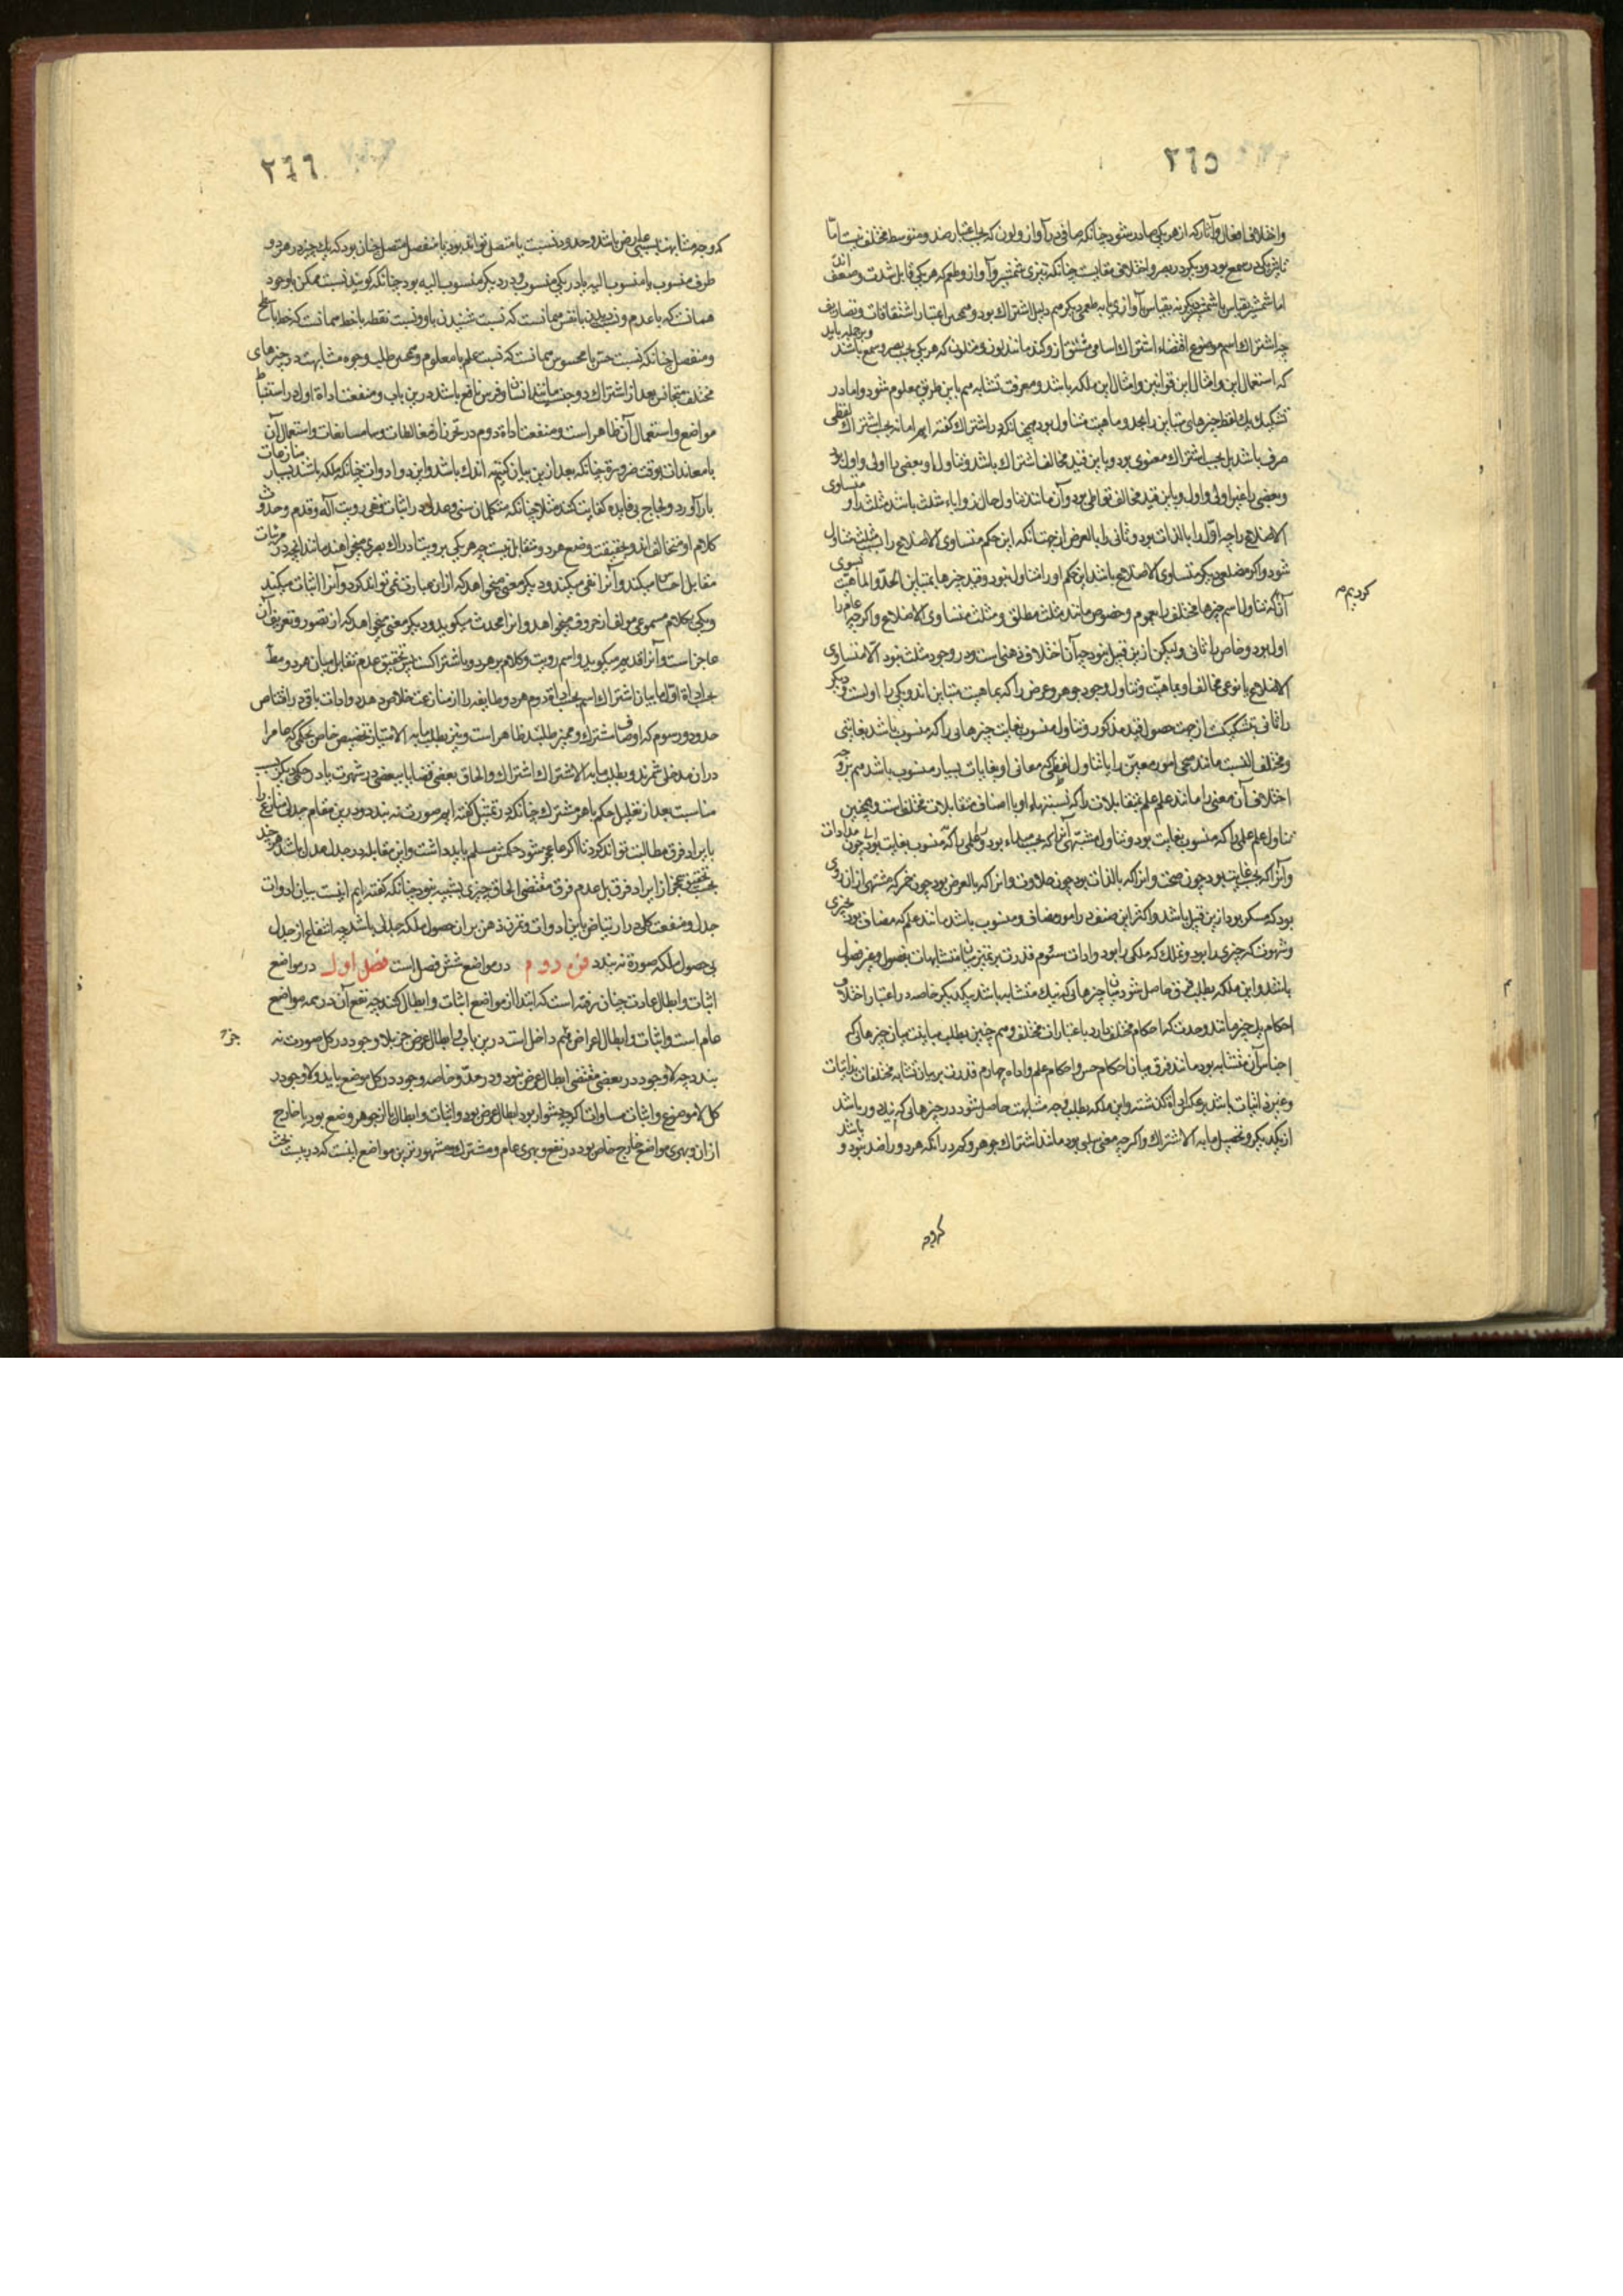 ٢٦٥
واختلاف افعال و آثار که از هر یکی صادر شود چنانکه صافی در آواز و لون که بحسب اعتبار ضد و متوسط مختلف نیست اما
تاثیر یکی در سمع بود و دیگر در بصر و اختلاف مقایست چنانکه تیزی شمشیر و آواز و طعم که هر یکی قابل شدت و ضعف اند
اما شمشیر بقیاس با شمشیر دیگر نه بقیاس آوازی یا به طعمی دیگر هم دلیل اشتراک بود و همچنین اعتبار اشتقاقات و تصاریف
چه اشتراک اسم موضوع اقتضاء اشتراک اسامی مشتق ازو کند مانند لون و متلون که هر یکی بحسب بصر و سمع باشد و بر جمله باید
که استعمال این و امثال این قوانین و امثال این ملکه باشد و معرفت تشابه هم باین طریق معلوم شود و اما در
تشکیک یک لفظ چیزهای متباین را بحد و ماهیت متناول بود همچنانکه در اشتراک گفته ایم اما نه بحسب اشتراک لفظی
صرف باشد بل بحسب اشتراک معنوی بود و باین قید مخالف اشتراک باشد و تناول او بعضی را اولی و اول بود
و بعضی را غیر اولی و اول و باین قید مخالف تواطی بود و آن مانند تناول حال زوایاء مثلث باشد مثلث را و متساوی
الاضلاع را چه اول را بالذات بود و ثانی را بالعرض از جهت آنکه این حکم متساوی الاضلاع را بسبب مثلث متناول
شود و اگر مضلعی دیگر متساوی الاضلاع باشد این حکم او را متناول نبود و قید چیزها بمتباین الحد و الماهیت
کردیم
آنکه تناول اسم چیزها مختلف را بعموم و خصوص مانند مثلث مطلق و مثلث متساوی الاضلاع و اگر چه عام را
اول بود و خاص را ثانی ولیکن ازین قبیل نبود چه آن اختلاف ذهنی است و در وجود مثلث بود الا متساوی
الاضلاع یا نوعی مخالف او بماهیت و تناول وجود جوهر و عرض را که بماهیت متباین اند و یکی را اول است و دیگر
را ثانی تشکیکست از جهت حصول قید مذکور و تناول منسوب بغایت چیزهایی را که منسوب باشد بغایتی
و مختلف النسبت مانند صحی امور معین را یا تناول لفظی که معانی او بغایات بسیار منسوب باشد هم بر وجه
اختلاف آن معنی را مانند علم علم متقابلات را که نسبتهاء او با اصناف متقابلات مختلف است و همچنین
تناول علم علمی را که منسوب بغایت بود و تناول مشبهی آنرا که بحسب مبداء بود و علمی را که منسوب بغایت بود چون مداوات
و آنرا که بحسب غایت بود چون صحت و آنرا که بالذات بود چون حلاوت و آنرا که بالعرض بود چون خمر که مشتهی از آن روی
بود که مسکر بود ازین قبیل باشد و اکثر این صنف در امور مضاف و منسوب باشد مانند علم که مضاف بود بچیزی
و شهوت که چیزی را بود و تملک که ملکی را بود و ادات سوم قدرت بر تمییز میان متشابهات بفصول و غیر فصول
باشد و این ملکه بطلب فرق حاصل شود میان چیزهایی که نیک متشابه باشد بیکدیگر خاصه در اعتبار اختلاف
احکام یک چیز مانند وحدت که احکام مختلف دارد باعتبارات مختلف و هم چنین بطلب مباینت میان چیزهایی که
اجناس آن متشابه بود مانند فرق میان احکام حس و احکام علم و اداة چهارم قدرت بر بیان تشابه مختلفات بذاتیات
و غیر ذاتیات باشد بر عکس اداة گذشته و این ملکه بطلب وجه مشابهت حاصل شود در چیزهایی که نیک دور باشد
از یکدیگر و تحصیل ما به الاشتراک و اگر چه معنی سلبی بود مانند اشتراک جوهر و کم در آنکه هر دو را ضد نبود و باشد
٢٦٦
که وجه مشابهت نسبتی عارض باشد و حدود نسبت یا متصل تواند بود یا منفصل متصل چنان بود که یک چیز در هر دو
طرف منسوب یا منسوب الیه یا در یکی منسوب و در دیگر منسوب الیه بود چنانکه گویند نسبت ممکن با وجود
همانست که با عدم و نسبت دیدن با نفس همانست که نسبت شنیدن با او و نسبت نقطه با خط همانست که خط با سطح
و منفصل چنانکه نسبت حس با محسوس همانست که نسبت علم با معلوم و همچنین طلب وجوه مشابهت در چیزهای
مختلف متجانس بعد از اشتراک در جنس مانند انسان و فرس نافع باشد درین باب و منفعت اداة اول در استنباط
مواضع و استعمال آن ظاهر است و منفعت اداة دوم در تحرز از مغالطات و سامسایعات و استعمال آن
با معاندان بوقت ضرورة چنانکه بعد ازین بیان کنیم اندک باشد و این دو ادوات چنانکه ملکه باشد بسیار منازعات
باز آورد و لجاج بی فایده کفایت کند مثلا چنانکه متکلمان سنی و عدلی در اثبات و نفی رویت آله و قدم و حدوث
کلام او متخالف اند و بحقیقت وضع هر دو متقابل نیست چه هر یکی برویت ادراک بصری میخواهند مانند آنچه در مرئیات
مقابل احساس میکند و آنرا نفی میکند و دیگر معنی میخواهد که از ان عبارت نمی تواند کرد و آنرا اثبات میکند
و یکی بکلام مسموعی مولف از حروف میخواهد و آنرا محدث میگوید و دیگر معنی میخواهد که از تصور و تعریف آن
عاجز است و آنرا قدیم میگوید و اسم رویت و کلام بر هر دو باشتراکست پس تحقیق عدم تقابل میان هر دو مط
بحسب اداة اول یا بیان اشتراک اسم بحسب اداة دوم هر دو طایفه را از منازعت خلاص دهد و ادات باقی در اقتناص
حدود و رسوم که اوصاف اشتراک و ممیز طلبند ظاهر است و نیز بطلب ما به الامتیاز تخصیص خاص بحکمی که عام را
در ان مدخلی شمرند و بطلب ما به الاشتراک اشتراک و الحاق بعضی قضایا ببعضی در شهوت یا در حکمی دیگر بسبب
مناسبت بعد از تعلیل حکم با هر مشترک چنانکه در تمثیل گفته ایم صورت نه بندد و درین مقام جدلی منازع را
با یراد فرق مطالبت تواند کرد تا اگر عاجز شود حکمش مسلم باید داشت و این مقابله در جدل عدل باشد هر چند
بحسب تحقیق عجز از ایراد فرق بل عدم فرق مقتضی الحاق چیزی بشبیه نبود چنانکه گفته ایم اینست بیان ادوات
جدل و منفعت کلی در ارتیاض باین ادوات و تمرن ذهن بر ان حصول ملکه جدلی باشد چه انتفاع از جدل
بی حصول ملکه صورة نه بندد فن دوم در مواضع شش فصل است فصل اول در مواضع
اثبات و ابطال عادت چنان رفته است که ابتدا از مواضع اثبات و ابطال کنند چه نفع آن در همه مواضع
عام است و اثبات و ابطال اعراض هم داخل است درین باب و ابطال عرض جز بلا وجود در کل صورت نه
جز
بندد چه لا وجود در بعضی مقتضی ابطال عرض نبود و در حد و خاصه وجود در کل موضع باید و لا وجود در
کل لا موضوع و اثبات مساوات اگر چه دشوار بود ابطال عرض بود و اثبات و ابطال یا از جوهر وضع بود یا خارج
از ان و بهری مواضع خارج خاص بود در نفع و بهری عام و مشترک و مشهورترین مواضع اینست که در بیست بحث